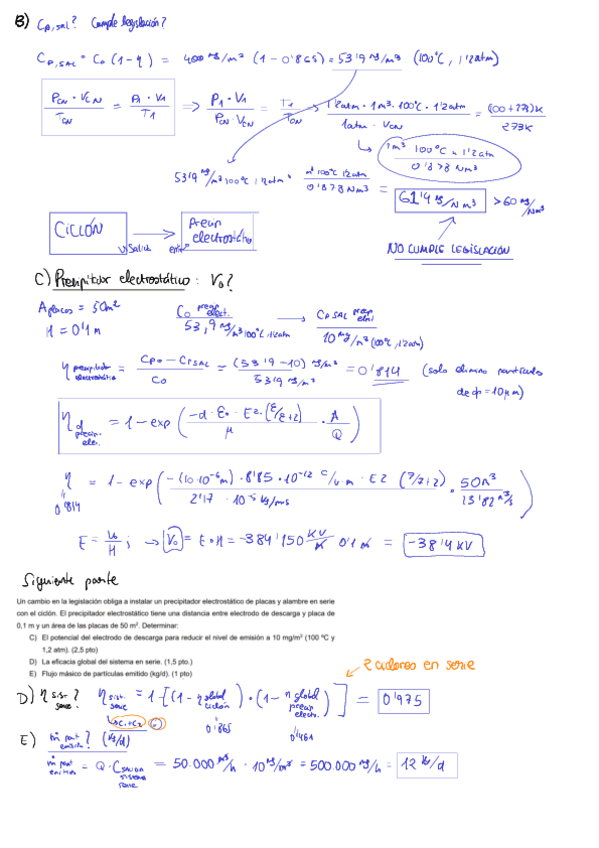 B) Cp,sal? Cumple legislación?
Cp,sal = Co (1-η) = 400 mg/m³ (1-0'865) = 53'9 mg/m³ (100°C, 1'2atm)
PCN · VCN / TCN = P1 · V1 / T1 => P1 · V1 / PCN · VCN = T1 / TCN → 1'2atm · 1m³ 100°C 1'2atm / 1atm · VCN = (100+273)K / 273K
1m³ 100°C 1'2atm / 0'878 Nm³
53'9 mg/m³ 100°C, 1'2atm · m³ 100°C 1'2atm / 0'878 Nm³ = 61'4 mg/Nm³ > 60 mg/Nm³
CICLÓN → Precip electrostático
Salida
NO CUMPLE LEGISLACIÓN
C) Precipitador electrostático: Vo?
A placas = 50m²
H = 0'1 m
Co precip elect. → Cp SAL precip elect
53,9 mg/m³ 100°C, 1'2atm
10 mg/m³ (100°C, 1'2atm)
η precipitador electrostático = Cpo - Cpsal / Co = (53'9-10) mg/m³ / 53'9 mg/m³ = 0'814 (solo elimino partículas de ϕ=10μm)
η d precip. elec. = 1-exp( -d · Eo · E2 · [E/E+2] / μ · A / Q )
η = 1-exp( -(10·10⁻⁶m) · 8'85·10⁻¹² C/v·m · E2 (7/7+2) / 2'17 · 10⁻⁵ kg/m·s · 50m² / 13'82 m³/s )
0'814
E = Vo / H ; → Vo = E·H = -384'150 KV/m 0'1 m = -38'4 KV
Siguiente parte
Un cambio en la legislación obliga a instalar un precipitador electrostático de placas y alambre en serie
con el ciclón. El precipitador electrostático tiene una distancia entre electrodo de descarga y placa de
0,1 m y un área de las placas de 50 m². Determinar:
C) El potencial del electrodo de descarga para reducir el nivel de emisión a 10 mg/m³ (100 ºC y
1,2 atm). (2,5 pto)
D) La eficacia global del sistema en serie. (1,5 pto.)
E) Flujo másico de partículas emitido (kg/d). (1 pto)
2 ciclones en serie
D) η sist. serie? η sist. serie = 1-[(1-η global ciclón) · (1-η global precip. electr.)] = 0'975
0'865
E) ṁ part emitida? (kg/d)
ṁ part emitida = Q · C salida sistema serie = 50.000 m³/h · 10 mg/m³ = 500.000 mg/h = 12 kg/d